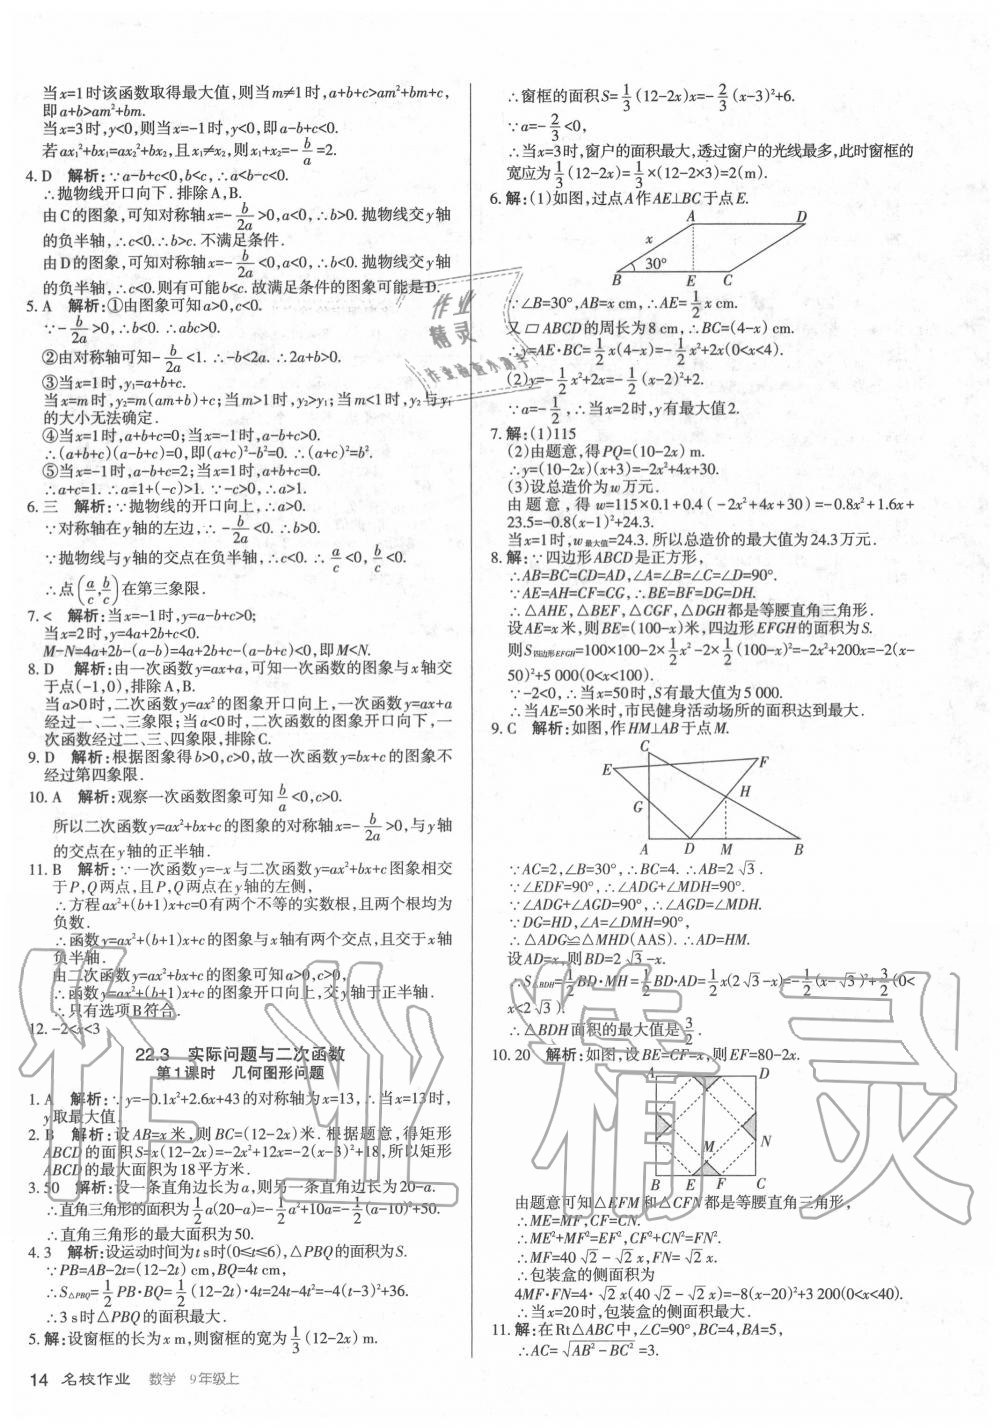 当x=1时该函数取得最大值,则当m≠1时,a+b+c>am²+bm+c,
即a+b>am²+bm.
当x=3时,y<0,则当x=-1时,y<0,即a-b+c<0.
若ax₁²+bx₁=ax₂²+bx₂,且x₁≠x₂,则x₁+x₂=-b/a=2.
4. D 解析:∵a-b+c<0,b<c,∴a<b-c<0.
∴抛物线开口向下.排除A,B.
由C的图象,可知对称轴x=-b/2a>0,a<0,∴b>0.抛物线交y轴
的负半轴,∴c<0.∴b>c.不满足条件.
由D的图象,可知对称轴x=-b/2a<0,a<0,∴b<0.抛物线交y轴
的负半轴,∴c<0.则有可能b<c.故满足条件的图象可能是D.
5. A 解析:①由图象可知a>0,c<0.
∵-b/2a>0,∴b<0.∴abc>0.
②由对称轴可知-b/2a<1.∴-b<2a.∴2a+b>0.
③当x=1时,y₁=a+b+c.
当x=m时,y₂=m(am+b)+c;当m>1时,y₂>y₁;当m<1时,y₂与y₁
的大小无法确定.
④当x=1时,a+b+c=0;当x=-1时,a-b+c>0.
∴(a+b+c)(a-b+c)=0,即(a+c)²-b²=0.∴(a+c)²=b².
⑤当x=-1时,a-b+c=2;当x=1时,a+b+c=0.
∴a+c=1.∴a=1+(-c)>1.∵-c>0,∴a>1.
6. 三 解析:∵抛物线的开口向上,∴a>0.
∵对称轴在y轴的左边,∴-b/2a<0.∴b>0.
∵抛物线与y轴的交点在负半轴,∴c<0.∴a/c<0,b/c<0.
∴点(a/c,b/c)在第三象限.
7. < 解析:当x=-1时,y=a-b+c>0;
当x=2时,y=4a+2b+c<0.
M-N=4a+2b-(a-b)=4a+2b+c-(a-b+c)<0,即M<N.
8. D 解析:由一次函数y=ax+a,可知一次函数的图象与x轴交
于点(-1,0),排除A,B.
当a>0时,二次函数y=ax²的图象开口向上,一次函数y=ax+a
经过一、二、三象限;当a<0时,二次函数的图象开口向下,一
次函数经过二、三、四象限,排除C.
9. D 解析:根据图象得b>0,c>0,故一次函数y=bx+c的图象不
经过第四象限.
10. A 解析:观察一次函数图象可知b/a<0,c>0.
所以二次函数y=ax²+bx+c的图象的对称轴x=-b/2a>0,与y轴
的交点在y轴的正半轴.
11. B 解析:∵一次函数y=-x与二次函数y=ax²+bx+c图象相交
于P,Q两点,且P,Q两点在y轴的左侧,
∴方程ax²+(b+1)x+c=0有两个不等的实数根,且两个根均为
负数.
∴函数y=ax²+(b+1)x+c的图象与x轴有两个交点,且交于x轴
负半轴.
由二次函数y=ax²+bx+c的图象可知a>0,c>0,
∴函数y=ax²+(b+1)x+c的图象开口向上,交y轴于正半轴.
∴只有选项B符合.
12. -2<x<3
22.3 实际问题与二次函数
第1课时 几何图形问题
1. A 解析:∵y=-0.1x²+2.6x+43的对称轴为x=13,∴当x=13时,
y取最大值.
2. B 解析:设AB=x米,则BC=(12-2x)米.根据题意,得矩形
ABCD的面积S=x(12-2x)=-2x²+12x=-2(x-3)²+18,所以矩形
ABCD的最大面积为18平方米.
3. 50 解析:设一条直角边长为a,则另一条直角边长为20-a.
∴直角三角形的面积为1/2a(20-a)=-1/2a²+10a=-1/2(a-10)²+50.
∴直角三角形的最大面积为50.
4. 3 解析:设运动时间为t s时(0≤t≤6),△PBQ的面积为S.
∵PB=AB-2t=(12-2t) cm,BQ=4t cm,
∴S△PBQ=1/2PB·BQ=1/2(12-2t)·4t=24t-4t²=-4(t-3)²+36.
∴3 s时△PBQ的面积最大.
5. 解:设窗框的长为x m,则窗框的宽为1/3(12-2x) m.
14 名校作业 数学 9年级上
∴窗框的面积S=1/3(12-2x)x=-2/3(x-3)²+6.
∵a=-2/3<0,
∴当x=3时,窗户的面积最大,透过窗户的光线最多,此时窗框的
宽应为1/3(12-2x)=1/3×(12-2×3)=2(m).
6. 解:(1)如图,过点A作AE⊥BC于点E.
A D
x
30°
B E C
∵∠B=30°,AB=x cm,∴AE=1/2x cm.
又▱ABCD的周长为8 cm,∴BC=(4-x) cm.
∴y=AE·BC=1/2x(4-x)=-1/2x²+2x(0<x<4).
(2)y=-1/2x²+2x=-1/2(x-2)²+2.
∵a=-1/2,∴当x=2时,y有最大值2.
7. 解:(1)115
(2)由题意,得PQ=(10-2x) m.
∴y=(10-2x)(x+3)=-2x²+4x+30.
(3)设总造价为w万元.
由题意,得w=115×0.1+0.4(-2x²+4x+30)=-0.8x²+1.6x+
23.5=-0.8(x-1)²+24.3.
当x=1时,w最大值=24.3.所以总造价的最大值为24.3万元.
8. 解:∵四边形ABCD是正方形,
∴AB=BC=CD=AD,∠A=∠B=∠C=∠D=90°.
∵AE=AH=CF=CG,∴BE=BF=DG=DH.
∴△AHE,△BEF,△CGF,△DGH都是等腰直角三角形.
设AE=x米,则BE=(100-x)米,四边形EFGH的面积为S.
则S四边形EFGH=100×100-2×1/2x²-2×1/2(100-x)²=-2x²+200x=-2(x-
50)²+5 000(0<x<100).
∵-2<0,∴当x=50时,S有最大值为5 000.
∴当AE=50米时,市民健身活动场所的面积达到最大.
9. C 解析:如图,作HM⊥AB于点M.
C
E F
G H
A D M B
∵AC=2,∠B=30°,∴BC=4.∴AB=2√3.
∵∠EDF=90°,∴∠ADG+∠MDH=90°.
∵∠ADG+∠AGD=90°,∴∠AGD=∠MDH.
∵DG=HD,∠A=∠DMH=90°.
∴△ADG≌△MHD(AAS).∴AD=HM.
设AD=x,则BD=2√3-x.
∴S△BDH=1/2BD·MH=1/2BD·AD=1/2x(2√3-x)=-1/2(x-√3)²+3/2(0<
x<2√3).
∴△BDH面积的最大值是3/2.
10. 20 解析:如图,设BE=CF=x,则EF=80-2x.
A D
M N
B E F C
由题意可知△EFM和△CFN都是等腰直角三角形,
∴ME=MF,CF=CN.
∴ME²+MF²=EF²,CF²+CN²=FN².
∴MF=40√2-√2x,FN=√2x.
∴包装盒的侧面积为
4MF·FN=4·√2x(40√2-√2x)=-8(x-20)²+3 200(0<x<40).
∴当x=20时,包装盒的侧面积最大.
11. 解:在Rt△ABC中,∠C=90°,BC=4,BA=5,
∴AC=√(AB²-BC²)=3.
作业精灵
作业
精灵